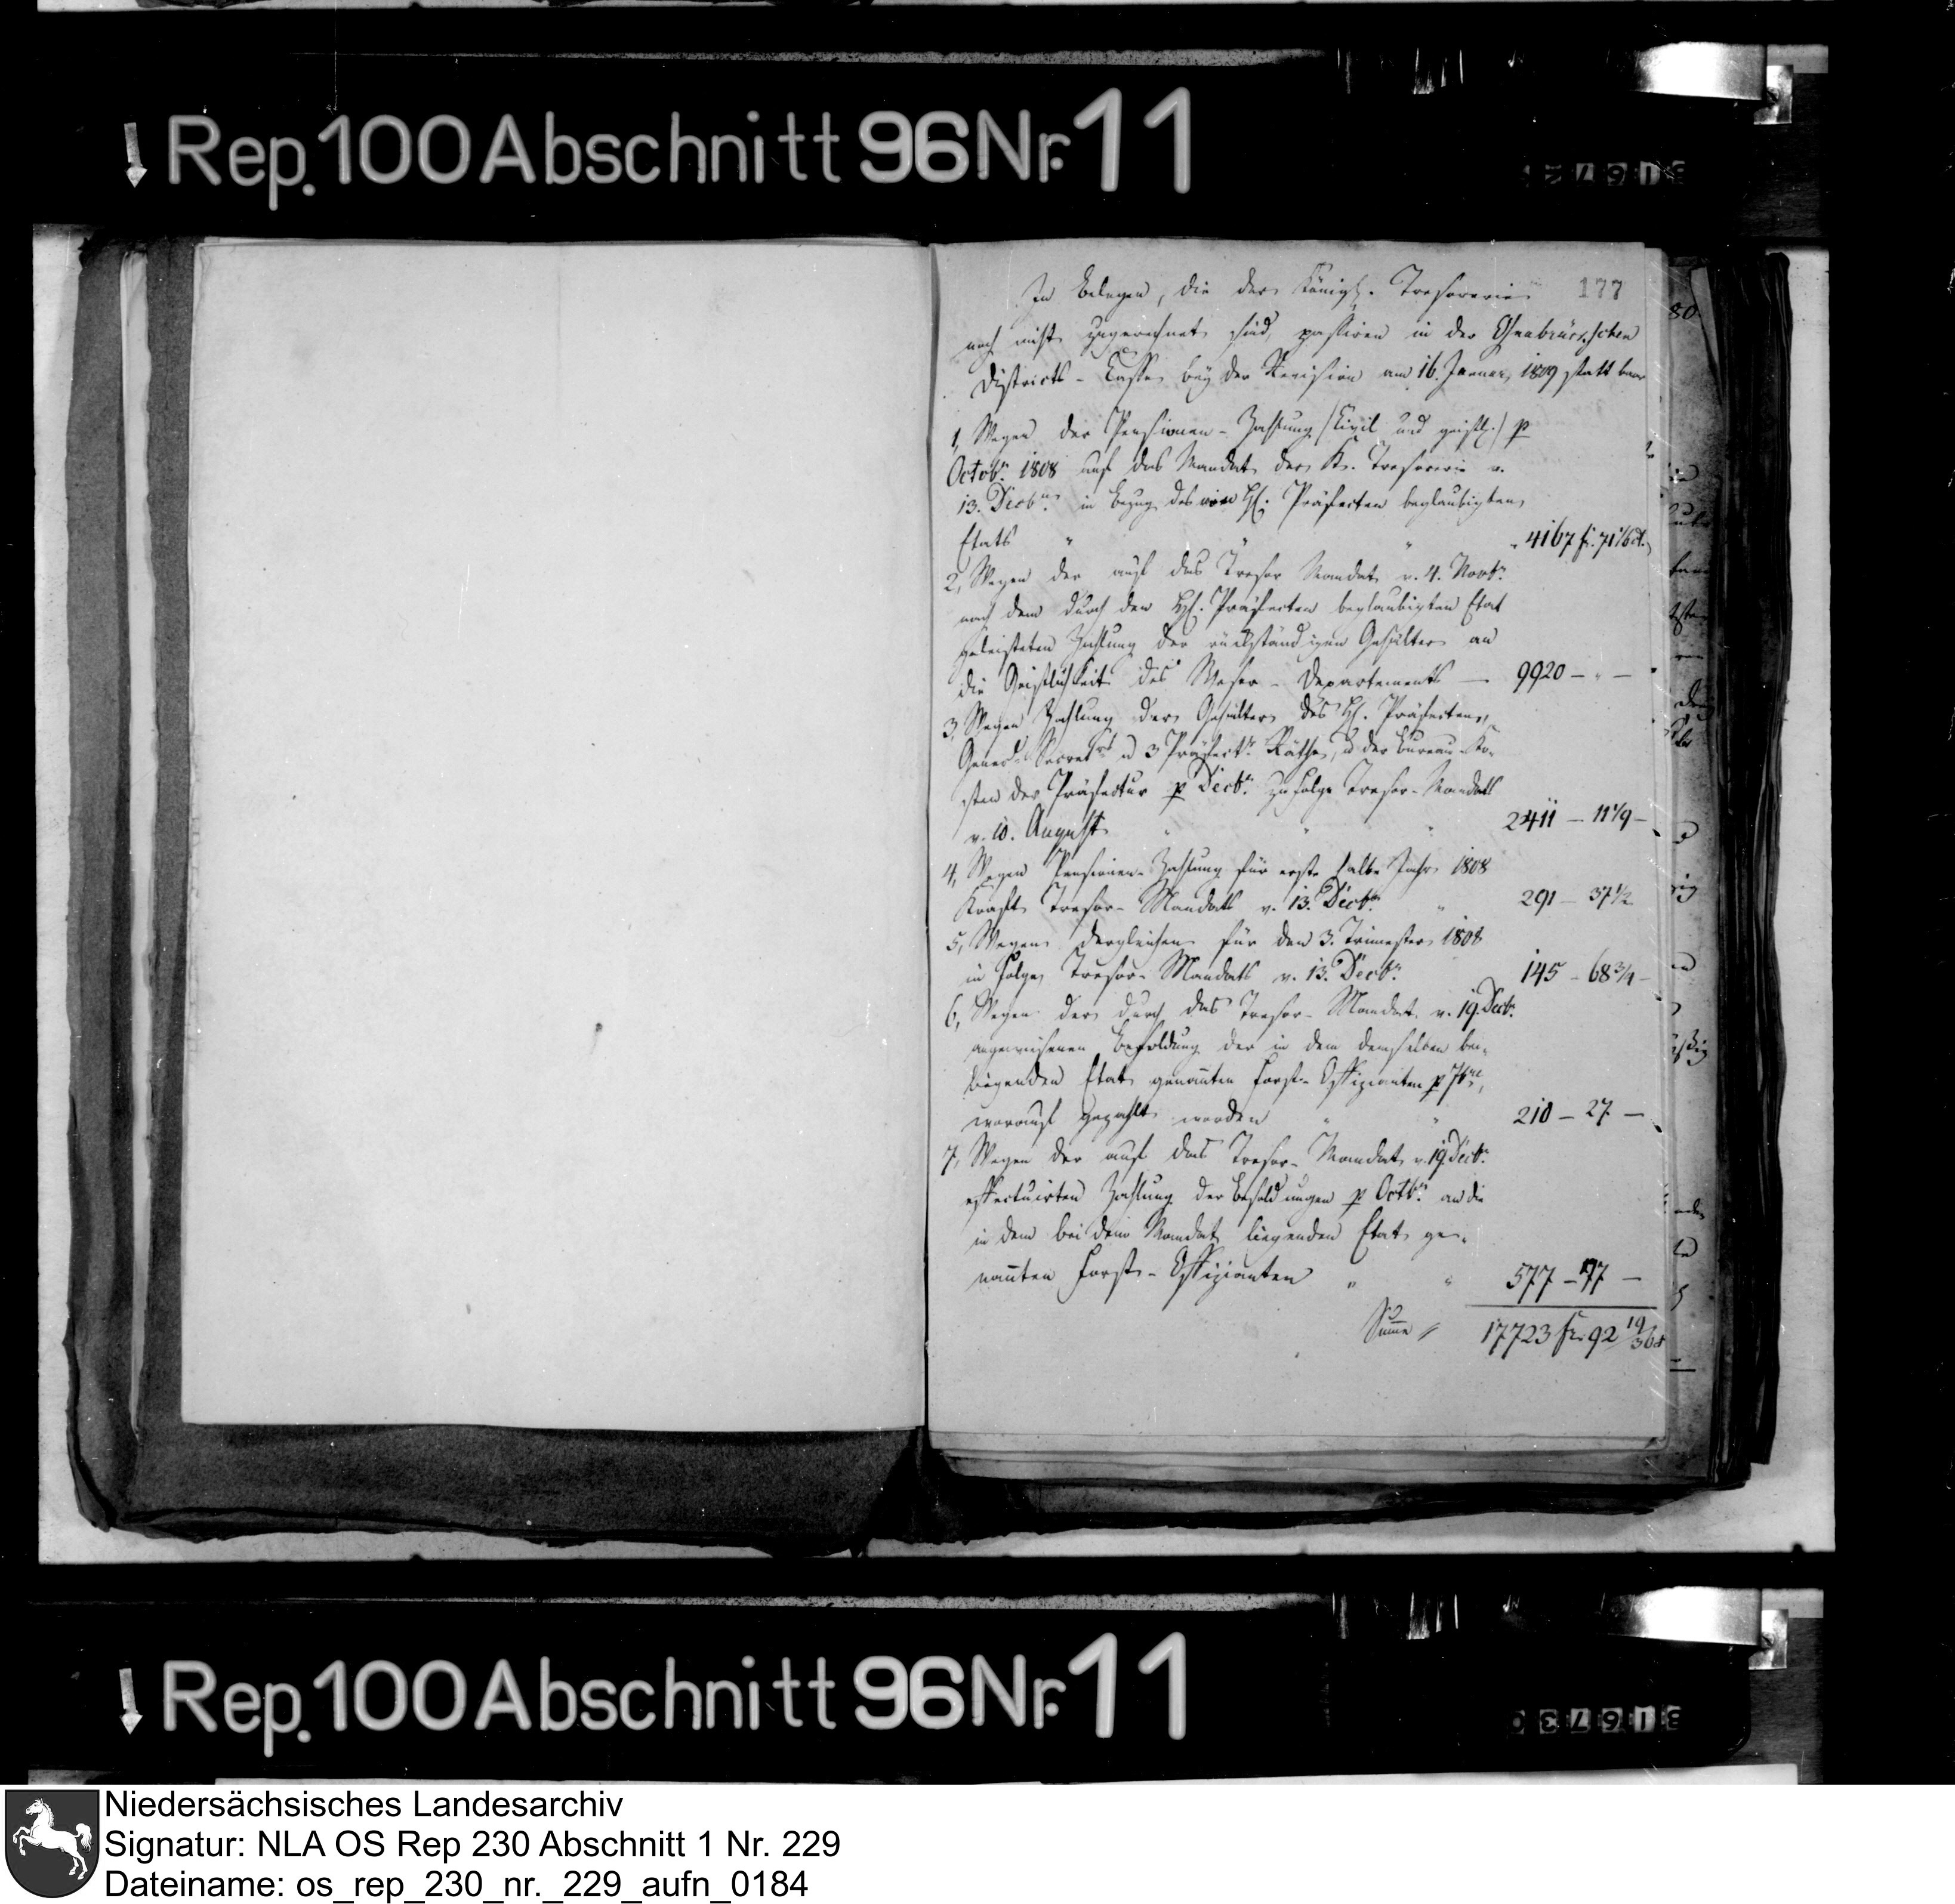 Rep.100 Abschnitt 96 Nr. 11
177
In Belegen, die der Königl. Tresorerie
noch nicht zugerechnet sind, passiren in der Osnabrückschen
Districts-Casse bey der Revision am 16. Januar 1809 statt baar
1, Wegen der Pensionen-Zahlung (Civil und geistl.) p
Octobr. 1808 auf das Mandat der K. Tresorerie v.
13. Decbr. in Bezug des vom H. Präfecten beglaubigten
Etats " " " 4167 fr. 71 1/6 ct.
2, Wegen der auf das Tresor Mandat v. 4. Novbr.
nach dem durch den H. Präfecten beglaubigten Etat
geleisteten Zahlung der rückständigen Gehälter an
die Geistlichkeit des Weser-Departements — 9920 — " —
3, Wegen Zahlung der Gehälter des H. Präfecten,
General-Secret. u 3 Präfect. Räthe, u der Bureau-Ko-
sten der Präfectur p Decbr. zufolge Tresor-Mandats
v. 10. August " " " 2411 — 11 1/9 —
4, Wegen Pensionen-Zahlung für erste halbe Jahr 1808
Kraft Tresor-Mandats v. 13. Decbr. " 291 — 37 1/2
5, Wegen dergleichen für den 3. Trimester 1808
in Folge Tresor-Mandats v. 13. Decbr. 145 — 68 3/4 —
6, Wegen der durch das Tresor-Mandat v. 19. Decbr.
angewiesenen Besoldung der in dem demselben bei-
liegenden Etat genannten Forst-Offizianten p 7bre,
worauf gezahlt worden " " 210 — 27 —
7, Wegen der auf das Tresor-Mandat v. 19. Decbr.
effectuirten Zahlung der Besoldungen p Octbr. an die
in dem bei dem Mandat liegenden Etat ge-
nannten Forst-Offizianten " " 577 — 77 —
Summe 17723 fr. 92 19/36 ct
Rep.100 Abschnitt 96 Nr. 11
Niedersächsisches Landesarchiv
Signatur: NLA OS Rep 230 Abschnitt 1 Nr. 229
Dateiname: os_rep_230_nr._229_aufn_0184